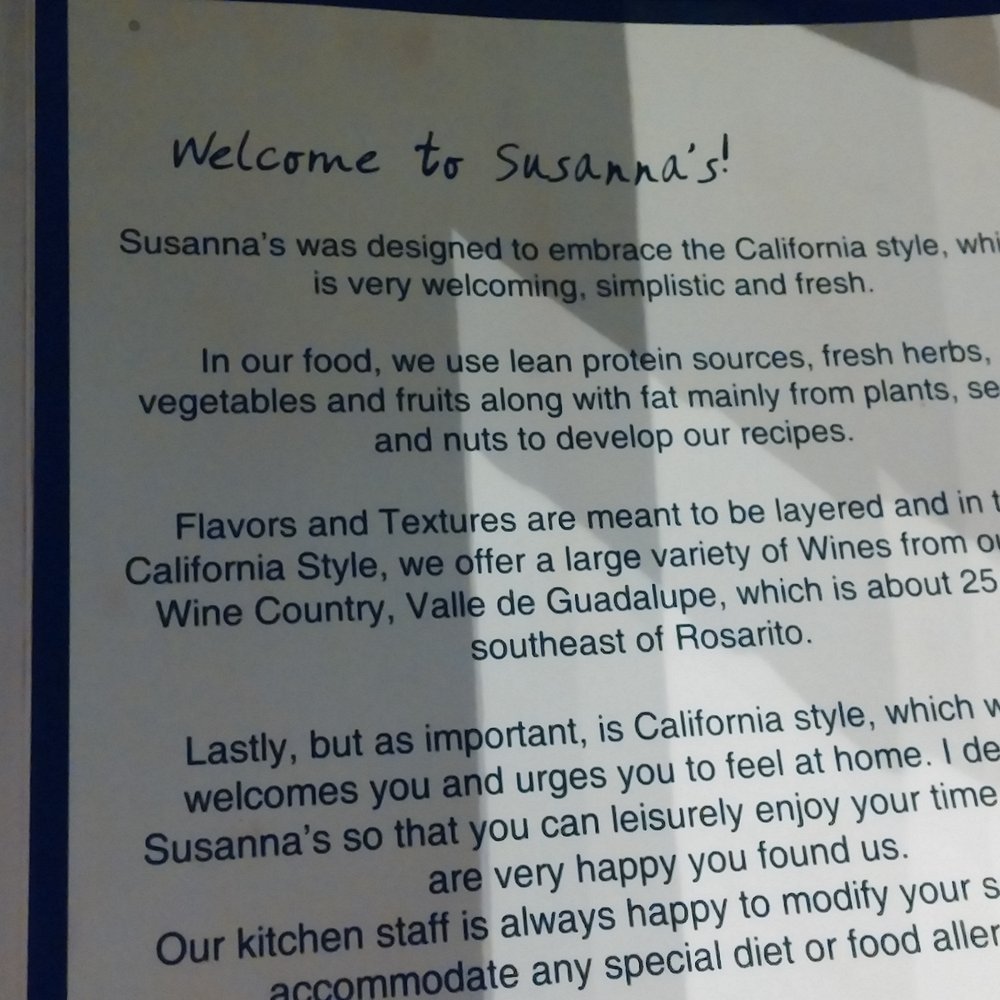 Welcome to Susanna's!
Susanna's was designed to embrace the California style,
is very welcoming, simplistic and fresh.
In our food, we use lean protein sources, fresh herbs,
vegetables and fruits along with fat mainly from plants,
and nuts to develop our recipes.
Flavors and Textures are meant to be layered and in
California Style, we offer a large variety of Wines from
Wine Country, Valle de Guadalupe, which is about 25
southeast of Rosarito.
Lastly, but as important, is California style, which
welcomes you and urges you to feel at home. I
Susanna's so that you can leisurely enjoy your time
are very happy you found us.
Our kitchen staff is always happy to modify your
accommodate any special diet or food